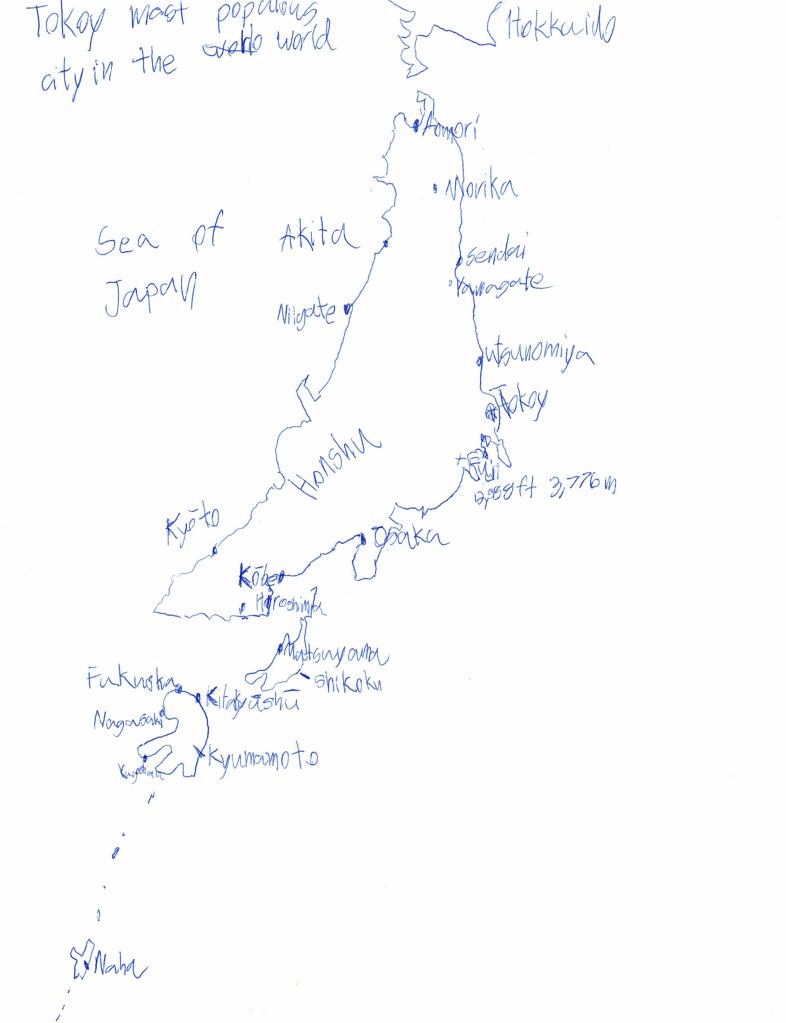 Tokoy most populous
city in the world
Hokkaido
Aomori
Morika
Sea of
Japan
Akita
Sendai
Yamagate
Niigate
Utsunomiya
Tokoy
Honshu
Fuji
3,776 m
Kyōto
Osaka
Kōbe
Hiroshima
Matsuyama
Shikoku
Fukuoka
Kitakyūshū
Nagasaki
Kyumamoto
Naha